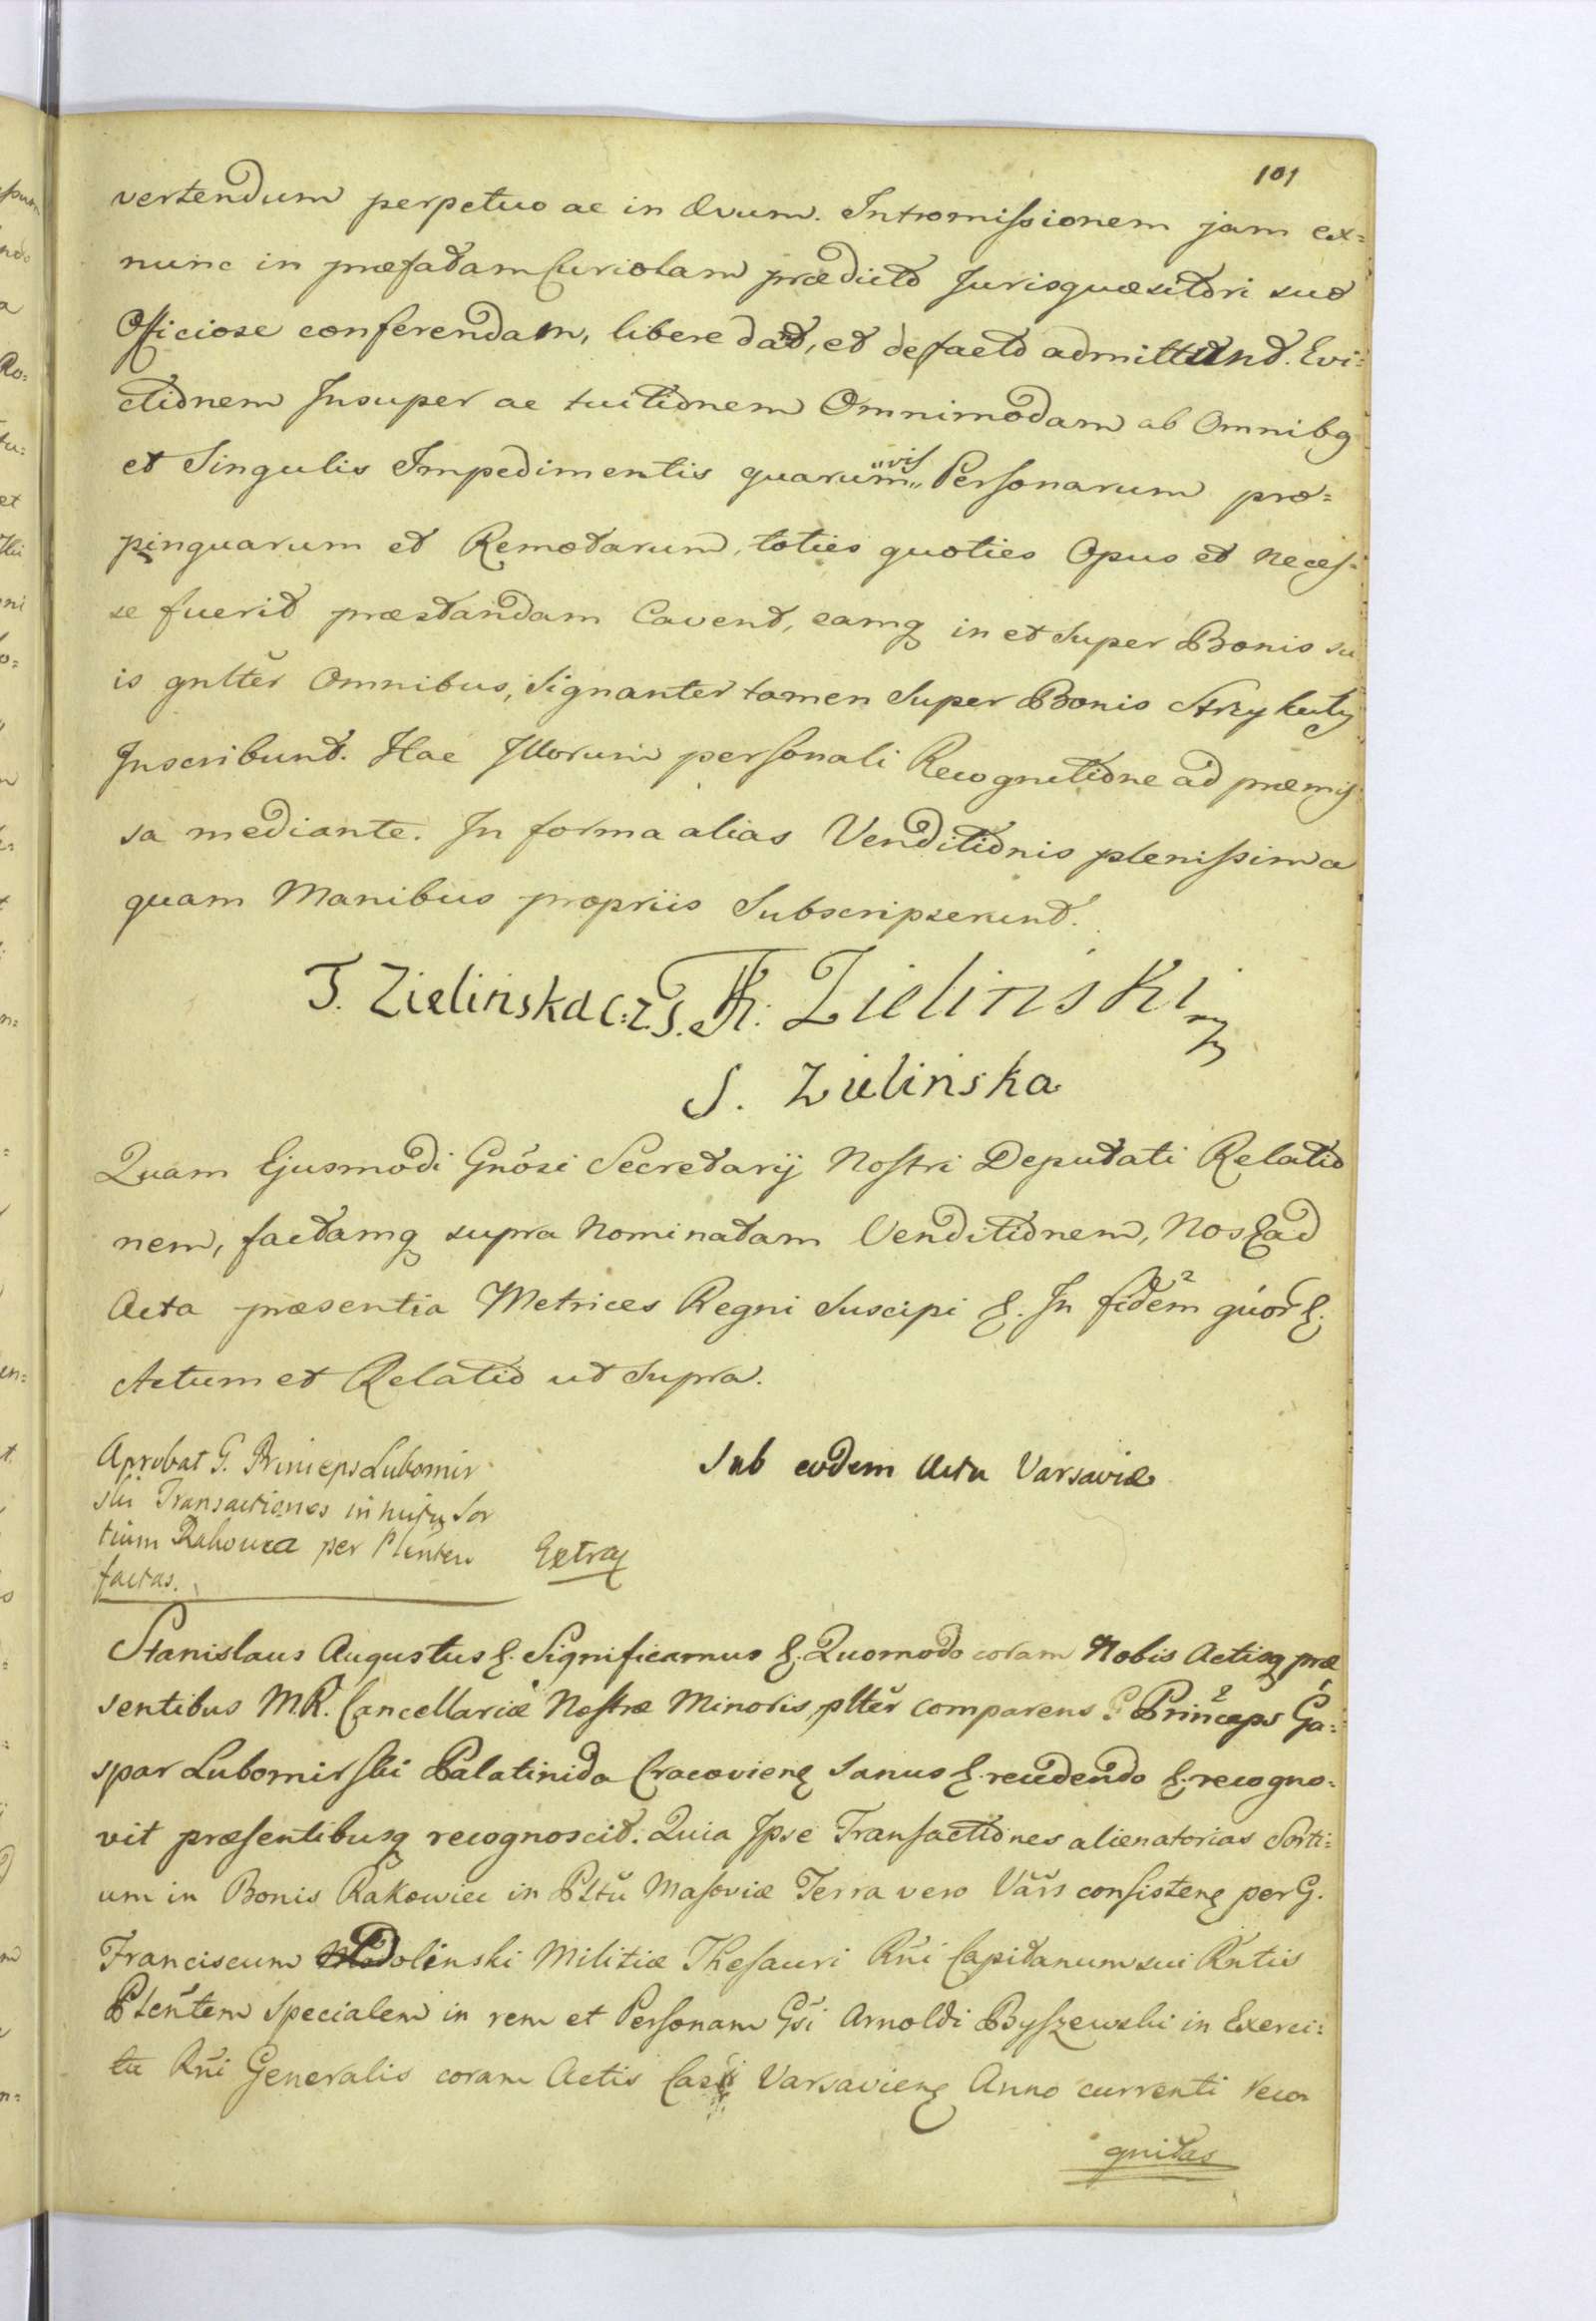 101
vertendum perpetuo ac in Ævum. Intromissionem jam ex=
nunc in præfatam Curiolam prædicto Jurisquæsitori suo
Officiose conferendam, libere dat, et defacto admittunt. Evi=
ctionem Insuper ac tuitionem Omnimodam ab Omnibq
et Singulis Impedimentis quarumvis Personarum pro=
pinquarum et Remotarum, toties quoties Opus et neces=
se fuerit præstandam Cavent, eamq in et Super Bonis su
is gnltĕr Omnibus, Signanter tamen Super Bonis
Inscribunt. Hac Illorum personali Recognitione ad præmis
sa mediante. In forma alias Venditionis plenissima
quam Manibus propriis Subscripserunt.
T. Zielińska C.Z.S. Zieliński
S. Zielińska
Quam Ejusmodi Gnosi Secretarij Nostri Deputati Relatio
nem, factamq supra Nominatam Venditionem, Nos ad
Acta præsentia Metrices Regni Suscipi &. In fidem quor &.
Actum et Relatio ut Supra.
Aprobat G. Princeps Lubomir
ski Transactiones intuitu Sor
tium Rakowca per Plenten
factas.
Extraq
Sub eodem Actu Varsaviæ
Stanislaus Augustus &. Significamus &. Quomodo coram Nobis Actisq præ
sentibus M.R. Cancellariæ Nostræ Minoris, pltĕr comparens G Princeps Ga=
spar Lubomirski Palatinida Cracovienq Sanus &. recedendo &. recogno=
vit præsentibusq recognoscit. Quia Ipse Transactiones alienatorias Sorti=
um in Bonis Rakowiec in Pltŭ Masoviæ Terra vero Vărs consistenq per G.
Franciscum Dolinski Militiæ Thesauri Rñi Capitanum sui Rntis
Plentem Specialem in rem et Personam Gsi Arnoldi Byszewski in Exerci=
tu Rñi Generalis coram Actis Varsavienq Anno currenti reco
gnitas